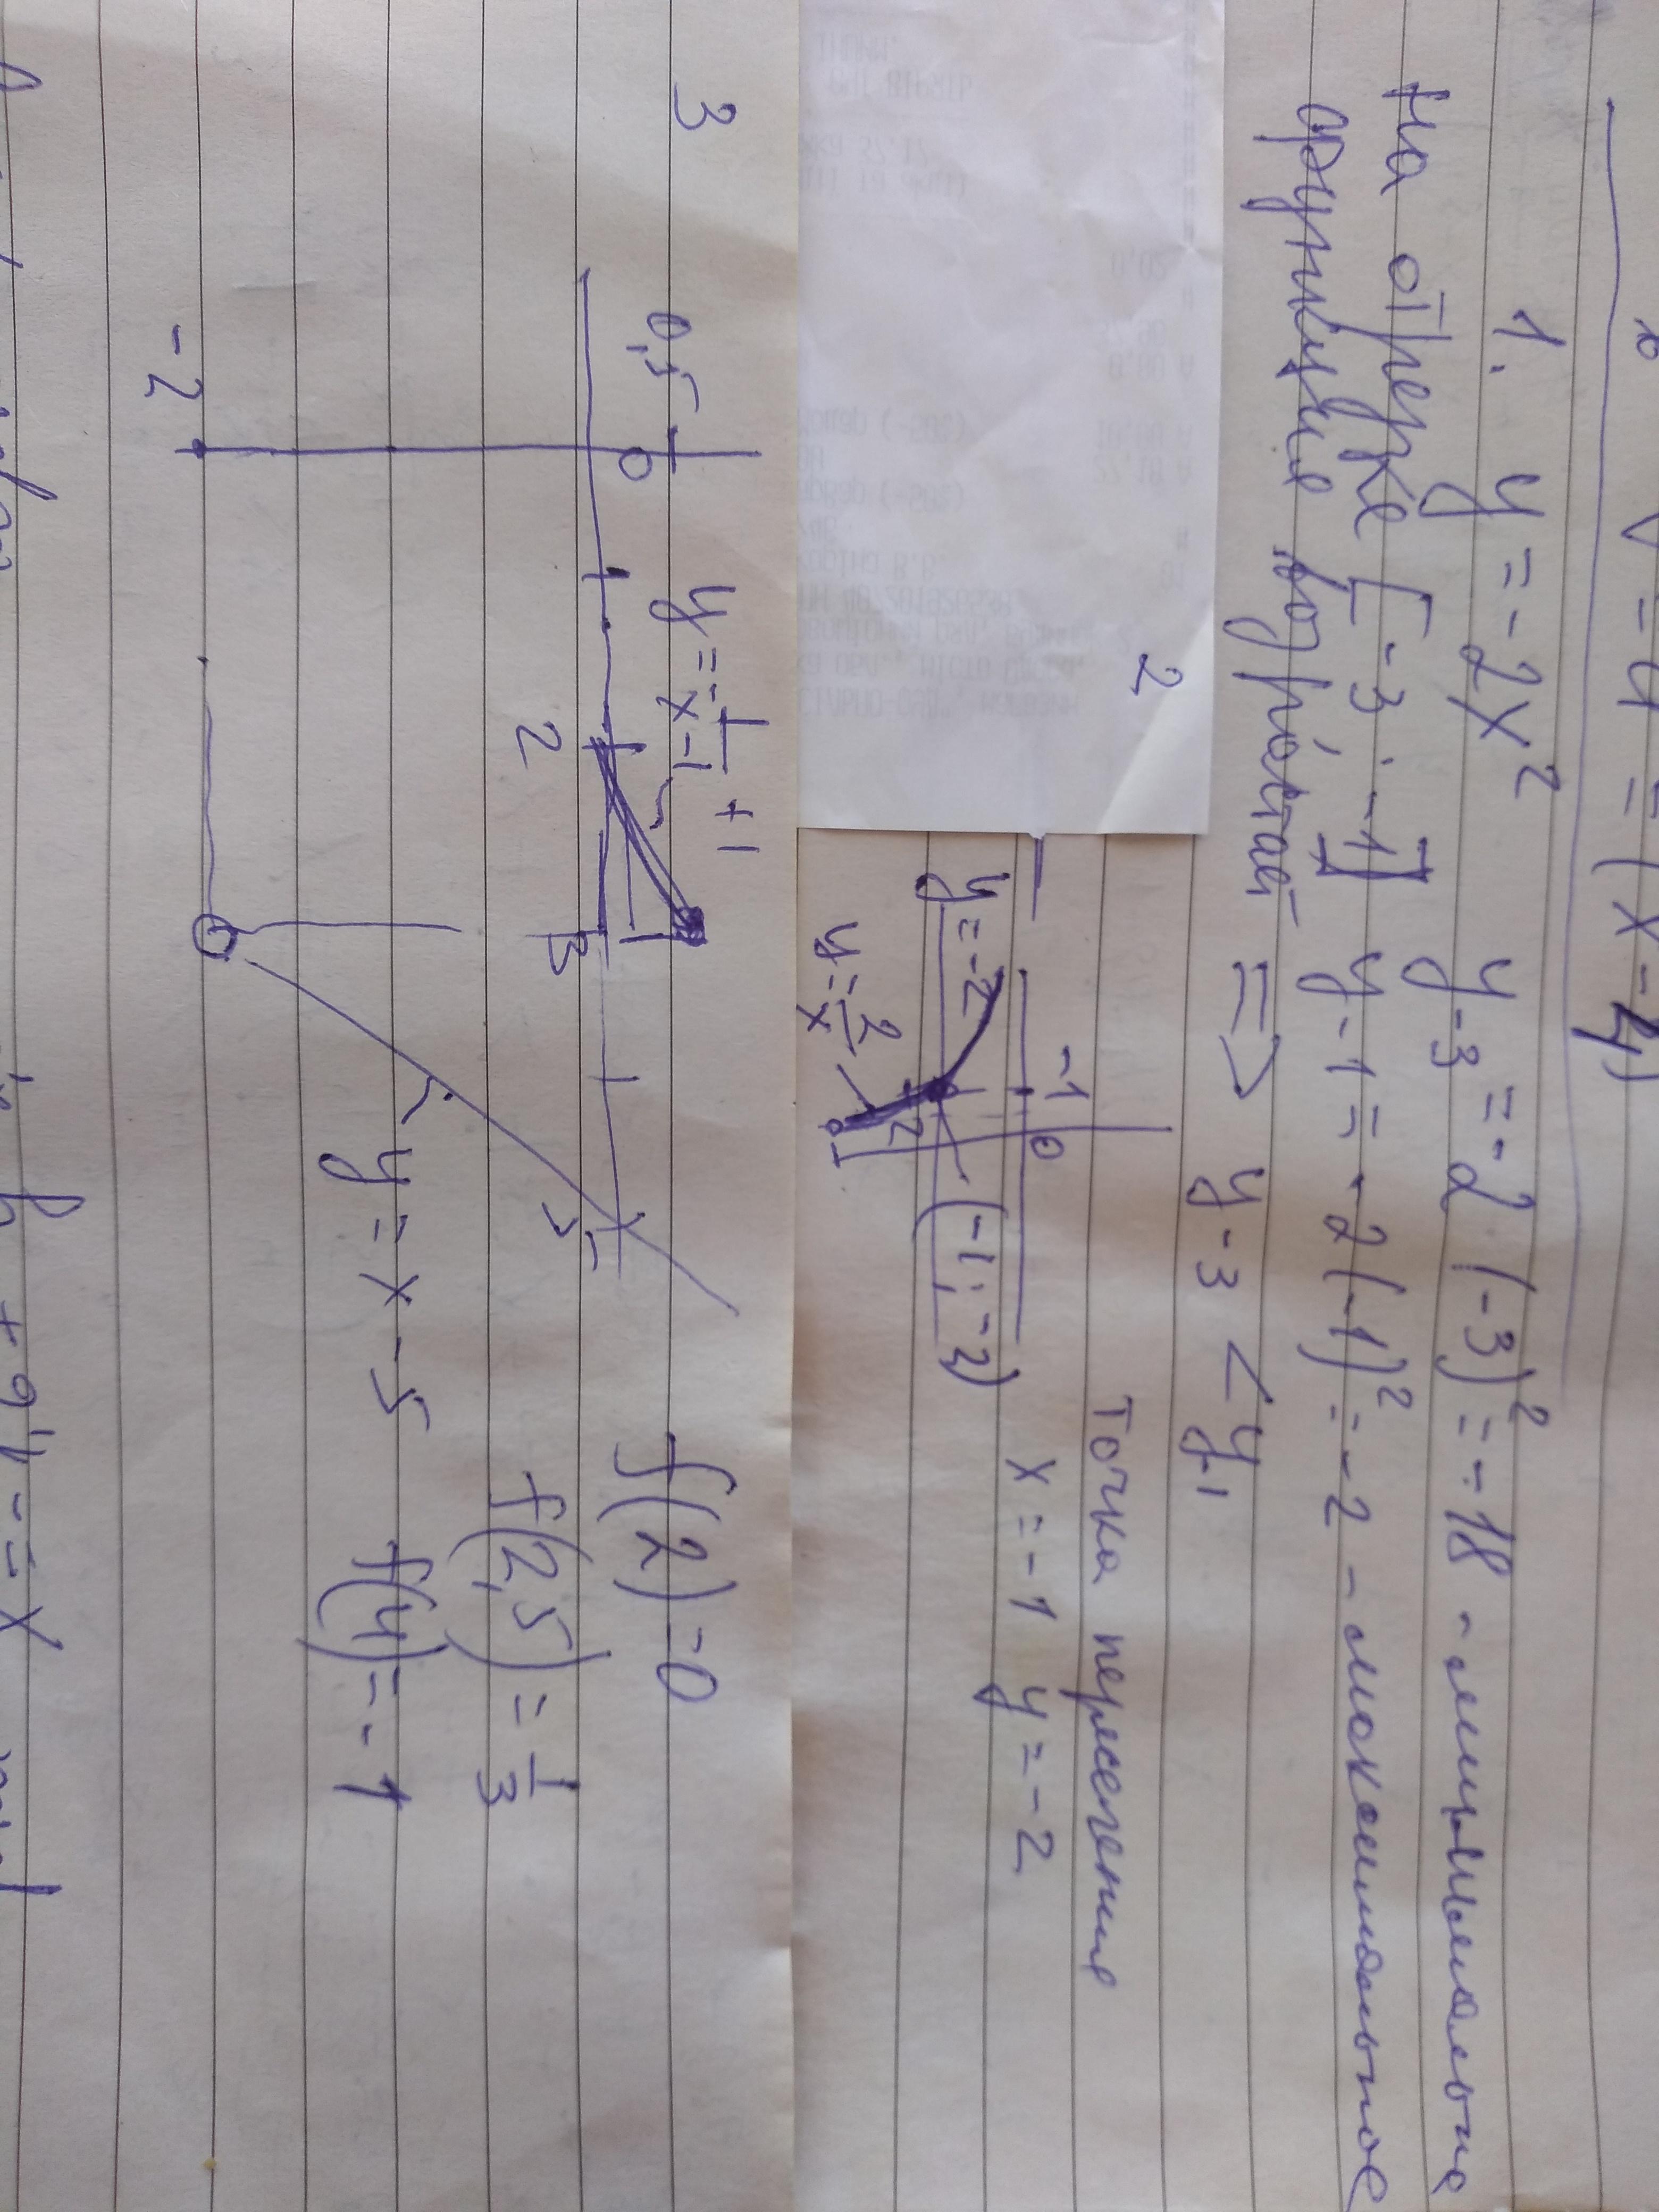 V = 4 = (x-4)
1. y = -2x² y-3 = -2(-3)² = -18 - минимальное
На отрезке [-3; -1] y-1 = -2(-1)² = -2 - максимальное
функция возрастает => y-3 < y-1
2
Точка пересечения
x = -1 y = -2
-1 0
y = -2
(-1; -2)
-2
y = 2/x
3
0,5
0
y = -1/(x-1) + 1
1
2
3
5
-2
y = x - 5
f(2) = 0
f(2,5) = 1/3
f(4) = -1